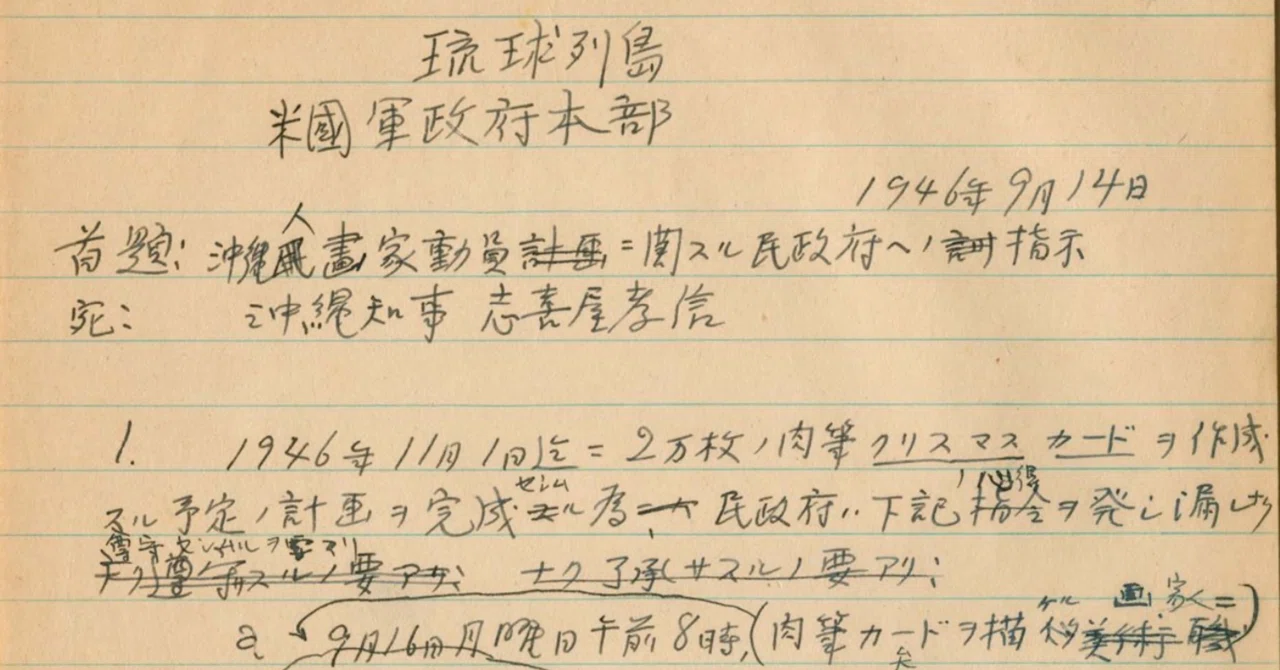 琉球列島
米國軍政府本部
1946年9月14日
首題: 沖縄人畫家動員計画ニ関スル民政府ヘノ指示
宛: 沖縄知事 志喜屋孝信
1. 1946年11月1日迄ニ2万枚ノ肉筆クリスマスカードヲ作成
スル予定ノ計画ヲ完成セシム為 民政府ハ下記ノ心得ヲ発シ漏レ
ナク遵守スルノ要アリ; ナク了承サスルノ要アリ;
a. 9月16日月曜日午前8時,(肉筆カードヲ描ケル画家ニ)